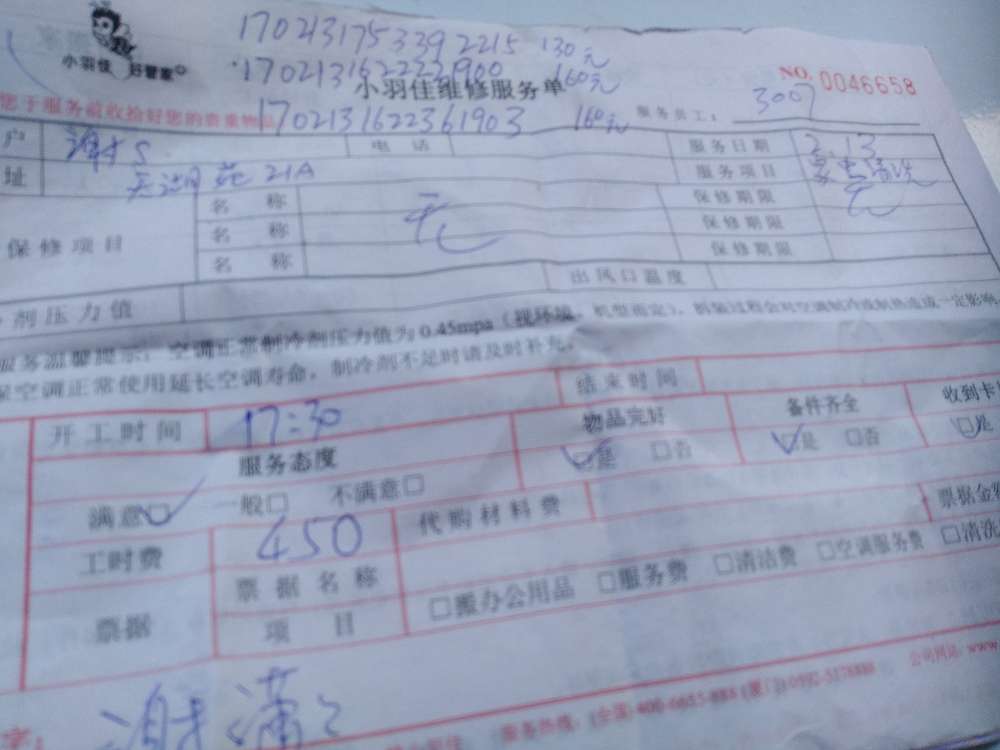 1702131753392215 130元
小羽佳 好管家
·1702131622221900 160元
小羽佳维修服务单
NO. 0046658
您于服务前收拾好您的贵重物品
1702131622361903 160元
服务员工: 3007
户 谢S 电 话 服务日期 2.13
址 天湖苑 21A 服务项目 家电清洗
保修项目 名 称 无 保修期限 无
名 称 保修期限
名 称 保修期限
剂压力值 出风口温度
服务温馨提示: 空调正常制冷剂压力值为0.45mpa (视环境、机型而定), 拆装过程会对空调制冷或制热造成一定影响
保空调正常使用延长空调寿命, 制冷剂不足时请及时补充。
开工时间 17:30 结束时间
服务态度 物品完好 备件齐全 收到卡
满意☑ 一般□ 不满意□ ☑是 □否 ☑是 □否 ☑是
工时费 450 代购材料费 票据金额
票据 票据名称 □搬办公用品 □服务费 □清洁费 □空调服务费 □清洗
项 目
谢潇
服务热线: (全国) 400-6655-888 (厦门) 0592-5178888 公司网站: www.